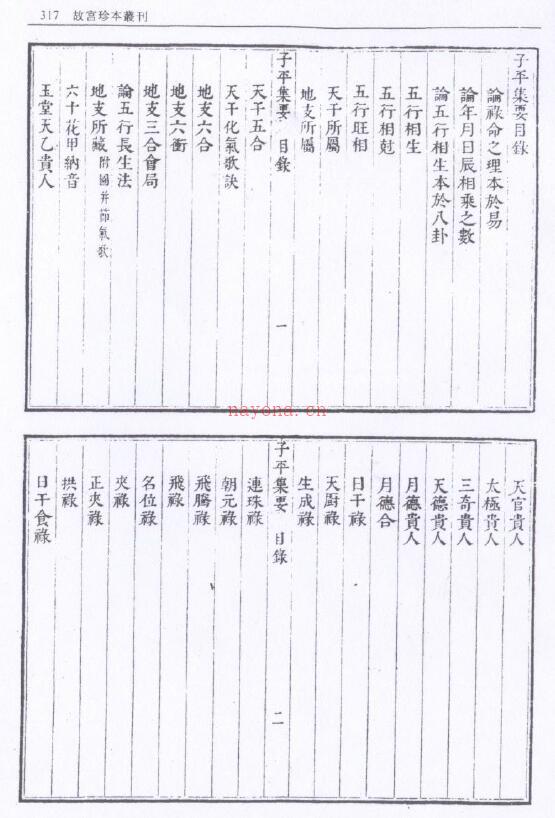 317 故宮珍本叢刊
子平集要目錄
論祿命之理本於易
論年月日辰相乘之數
論五行相生本於八卦
五行相生
五行相尅
五行旺相
天干所屬
地支所屬
子平集要 目錄 一
天干五合
天干化氣歌訣
地支六合
地支六衝
地支三合會局
論五行長生法
地支所藏 附圖并節氣歌
六十花甲納音
玉堂天乙貴人
nayona.cn
天官貴人
太極貴人
三奇貴人
天德貴人
月德貴人
月德合
日干祿
天廚祿
生成祿
子平集要 目錄 二
連珠祿
朝元祿
飛騰祿
飛祿
名位祿
夾祿
正夾祿
拱祿
日干食祿